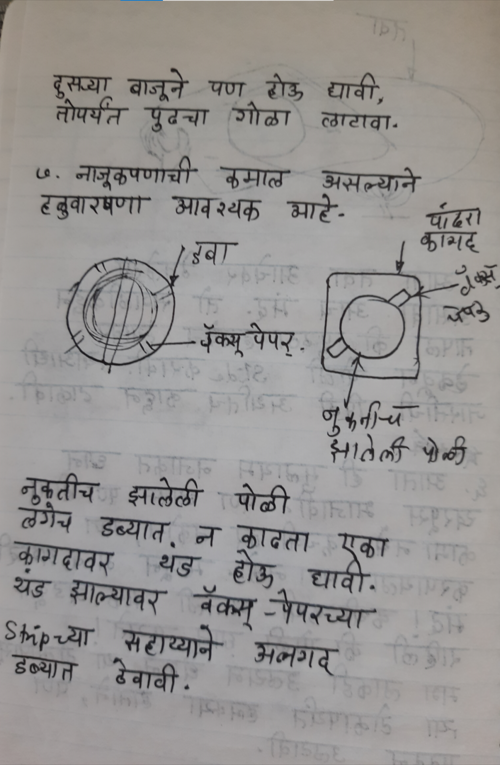 दुसऱ्या बाजूने पण होऊ द्यावी,
तोपर्यंत पुढचा गोळा लाटावा.
७. नाजूकपणाची कमाल असल्याने
हळुवारपणा आवश्यक आहे.
पांढरा
कागद
डबा
वॅक्स्
वॅक्स् पेपर.
नुकतीच
झालेली पोळी
नुकतीच झालेली पोळी
लगेच डब्यात न काढता एका
कागदावर थंड होऊ द्यावी.
थंड झाल्यावर वॅक्स्-पेपरच्या
Stripच्या सहाय्याने अलगद
डब्यात ठेवावी.